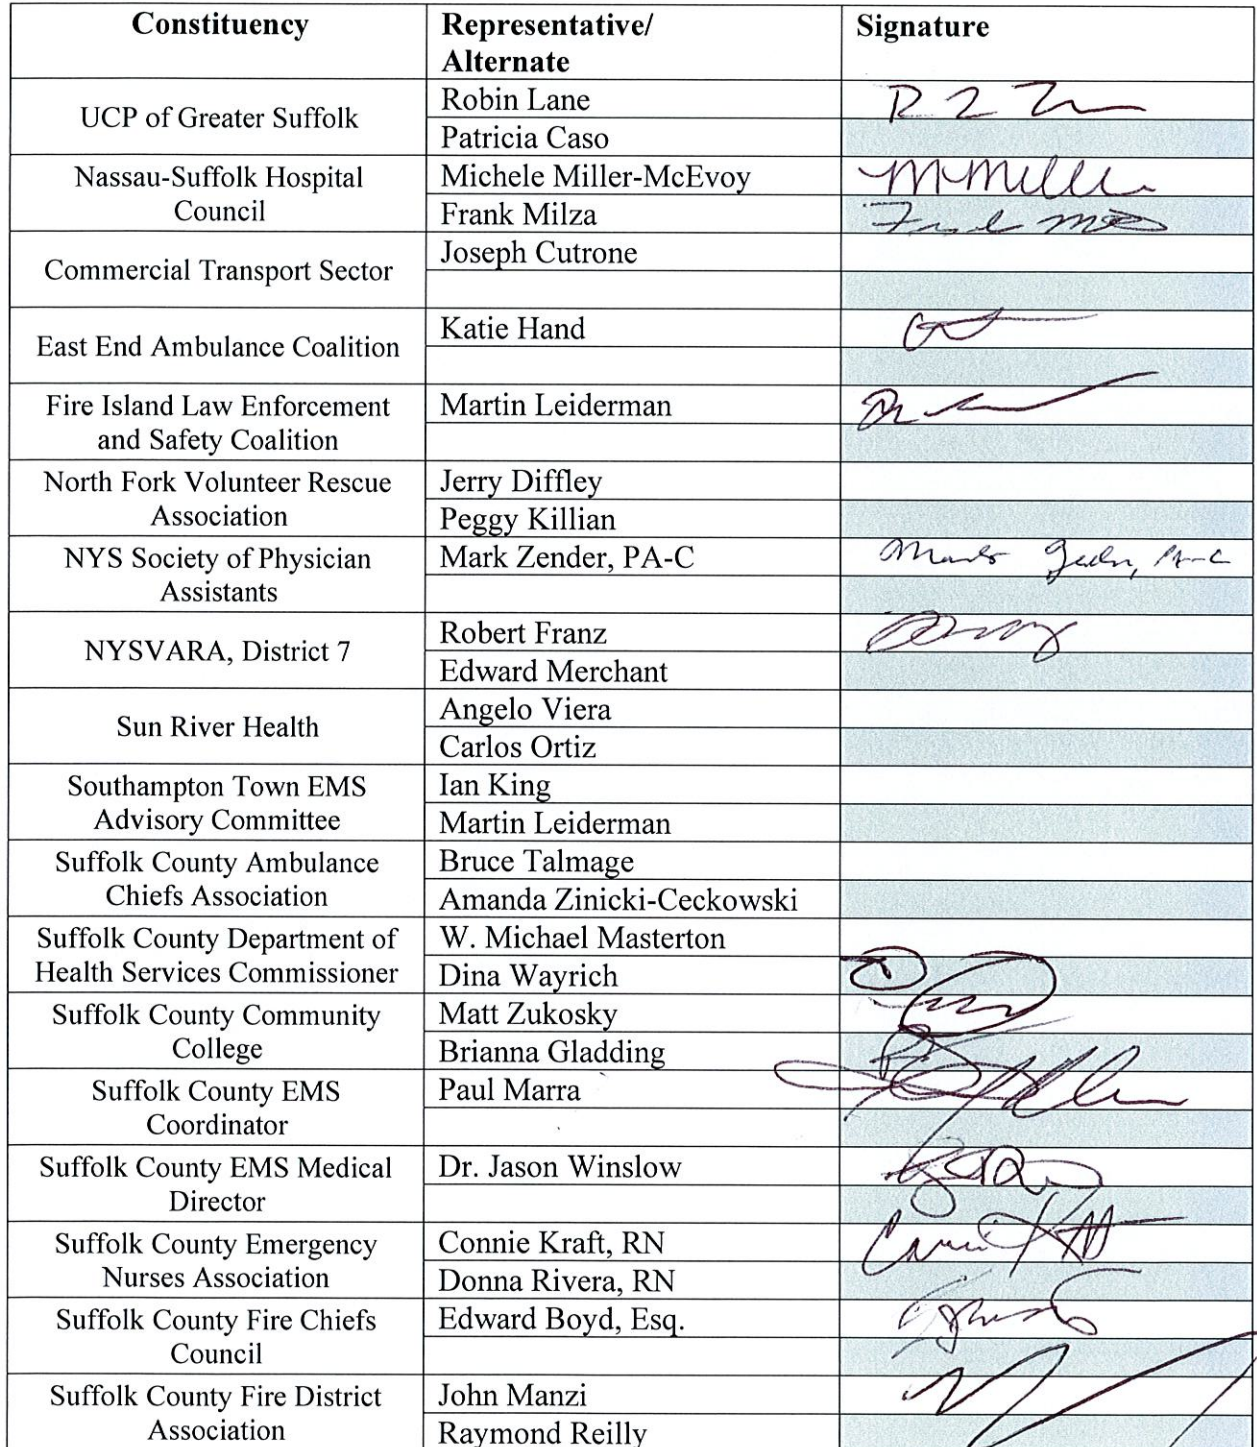 Constituency
Representative/
Alternate
Signature
UCP of Greater Suffolk
Robin Lane
Patricia Caso
Nassau-Suffolk Hospital
Council
Michele Miller-McEvoy
Frank Milza
Commercial Transport Sector
Joseph Cutrone
East End Ambulance Coalition
Katie Hand
Fire Island Law Enforcement
and Safety Coalition
Martin Leiderman
North Fork Volunteer Rescue
Association
Jerry Diffley
Peggy Killian
NYS Society of Physician
Assistants
Mark Zender, PA-C
NYSVARA, District 7
Robert Franz
Edward Merchant
Sun River Health
Angelo Viera
Carlos Ortiz
Southampton Town EMS
Advisory Committee
Ian King
Martin Leiderman
Suffolk County Ambulance
Chiefs Association
Bruce Talmage
Amanda Zinicki-Ceckowski
Suffolk County Department of
Health Services Commissioner
W. Michael Masterton
Dina Wayrich
Suffolk County Community
College
Matt Zukosky
Brianna Gladding
Suffolk County EMS
Coordinator
Paul Marra
Suffolk County EMS Medical
Director
Dr. Jason Winslow
Suffolk County Emergency
Nurses Association
Connie Kraft, RN
Donna Rivera, RN
Suffolk County Fire Chiefs
Council
Edward Boyd, Esq.
Suffolk County Fire District
Association
John Manzi
Raymond Reilly